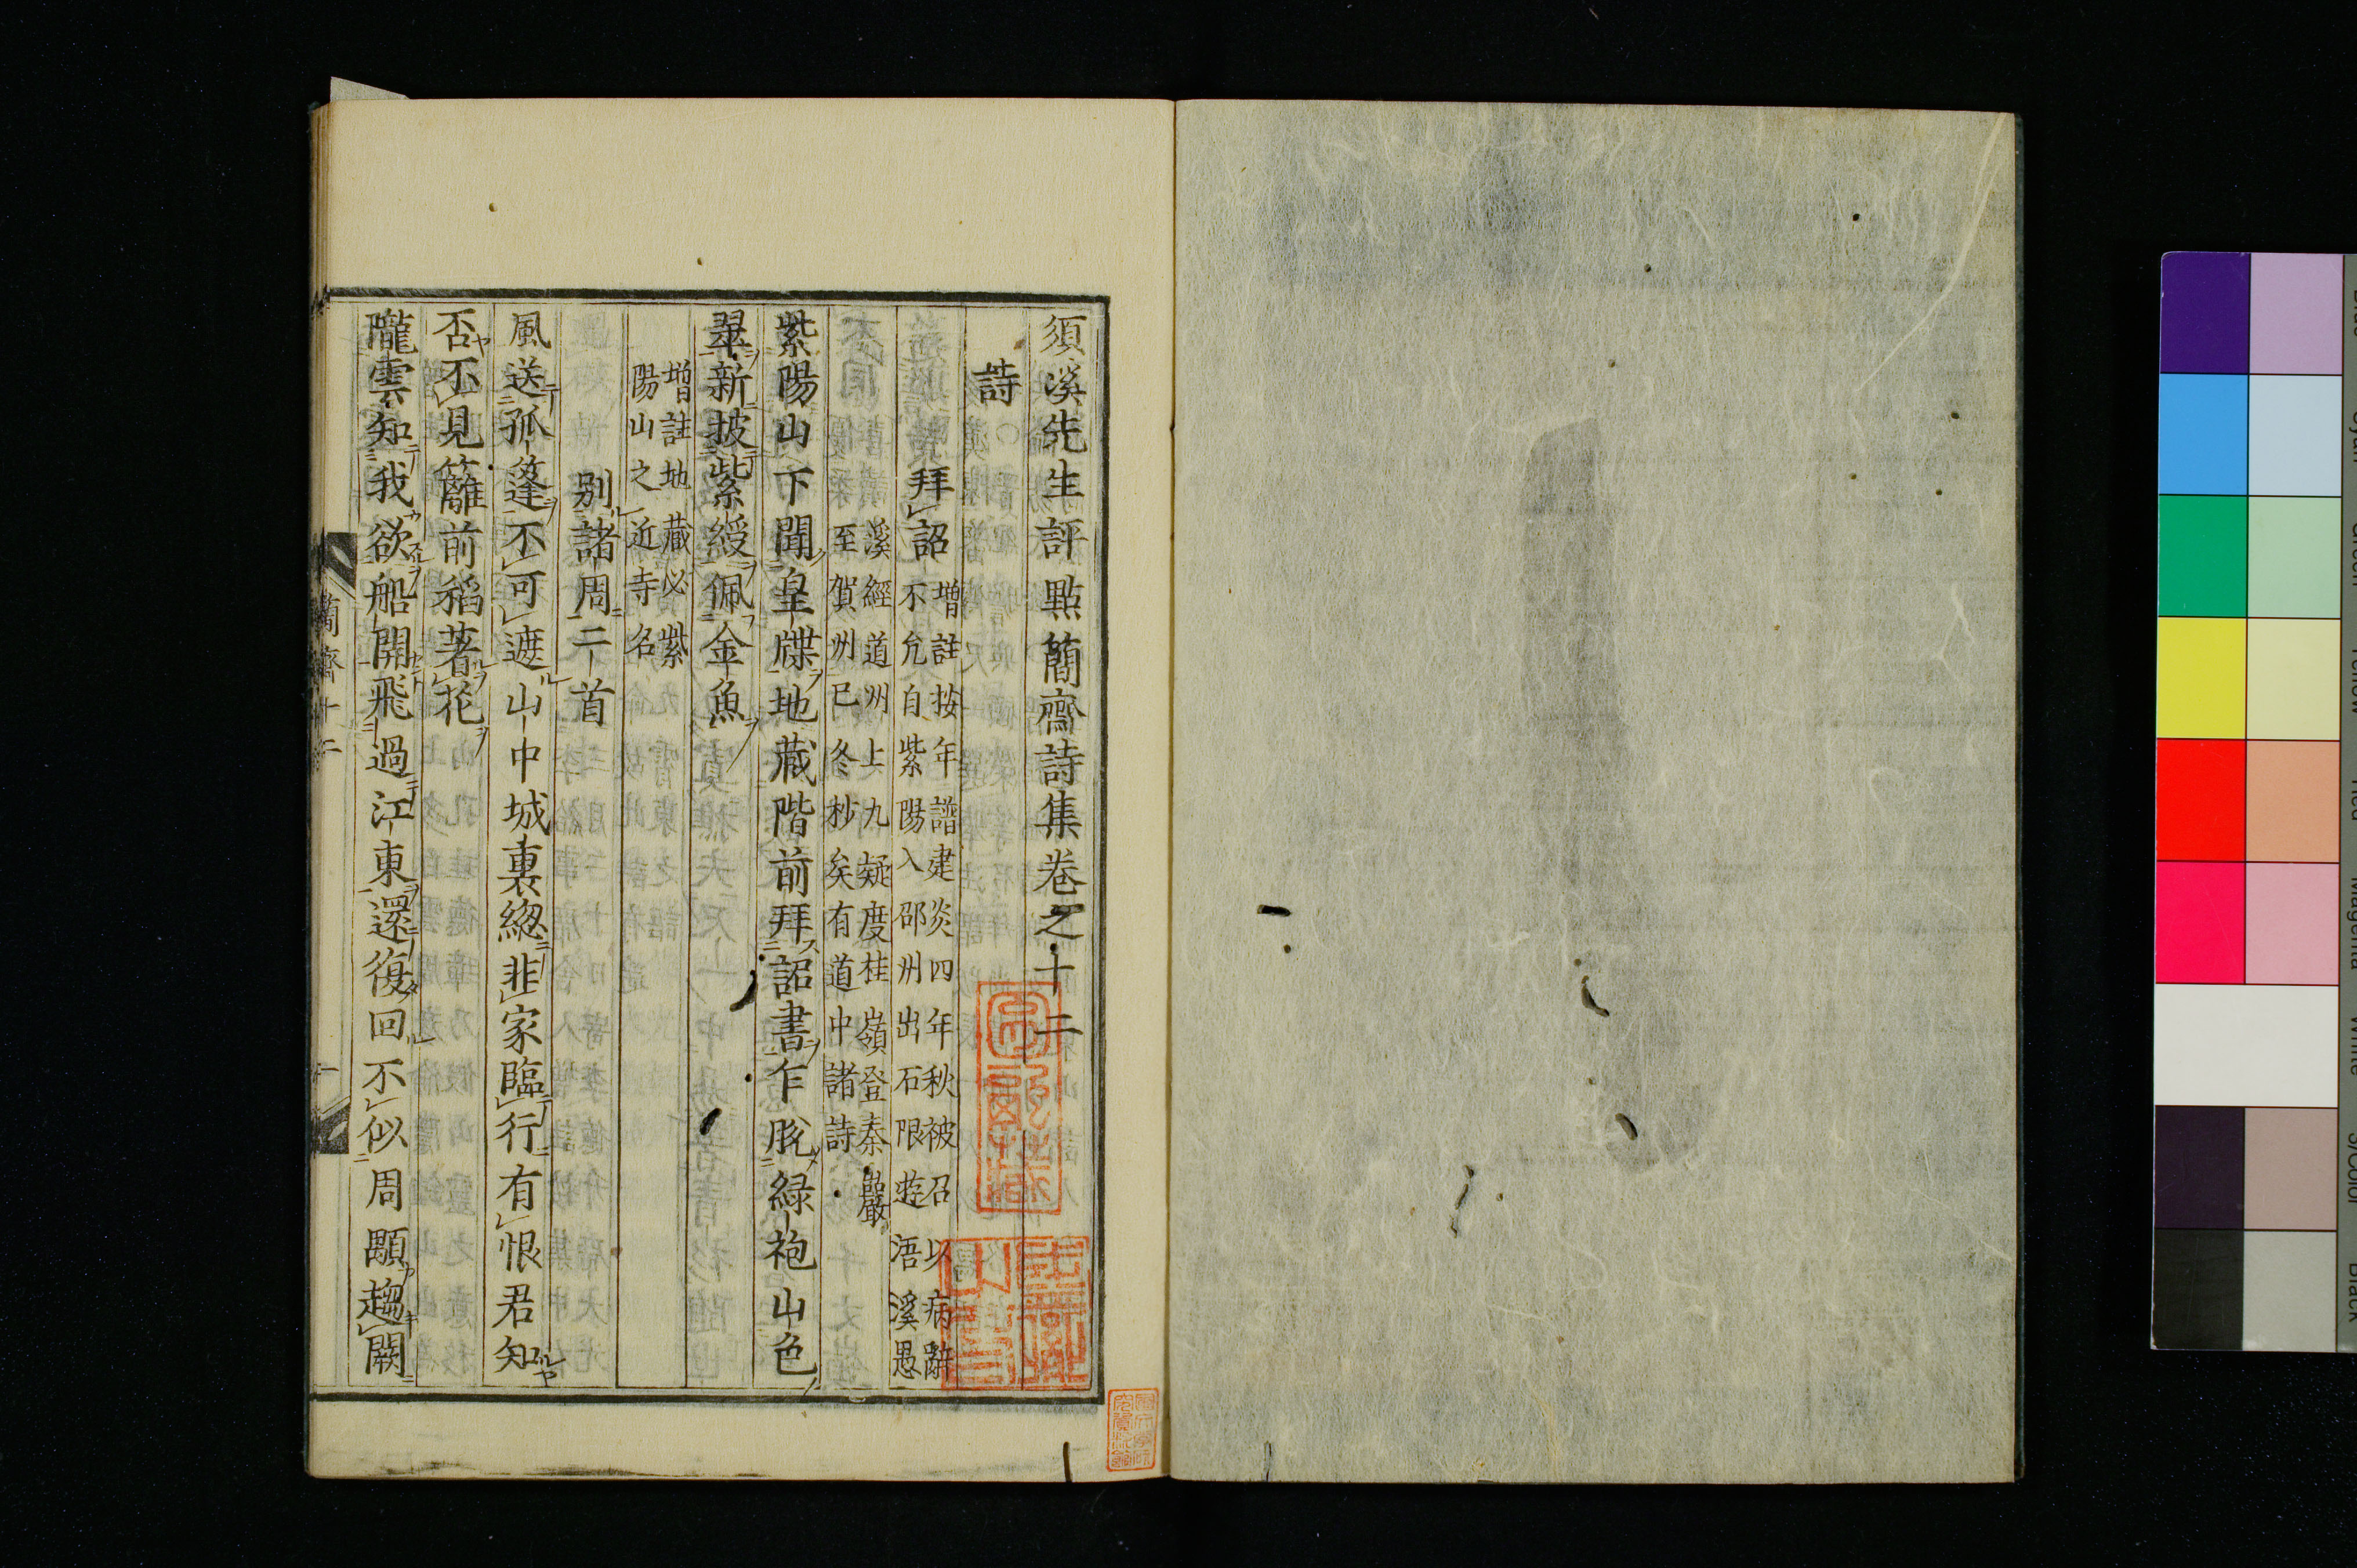 須溪先生評點簡齋詩集卷之十二
詩
拜詔
增註按年譜建炎四年秋被召以病辭
不允自紫陽入邵州出石限遊浯溪愚
溪經道州上九疑度桂嶺登秦巖
至賀州已冬杪矣有道中諸詩
紫陽山下聞皇牒地藏階前拜詔書乍脫綠袍山色
翠新披紫綬佩金魚
增註地藏必紫
陽山之近寺名
別諸周二首
風送孤篷不可遮山中城裏總非家臨行有恨君知
否不見籬前稻著花
隴雲知我欲船開飛過江東還復回不似周顒趨闕
簡齋十二
一